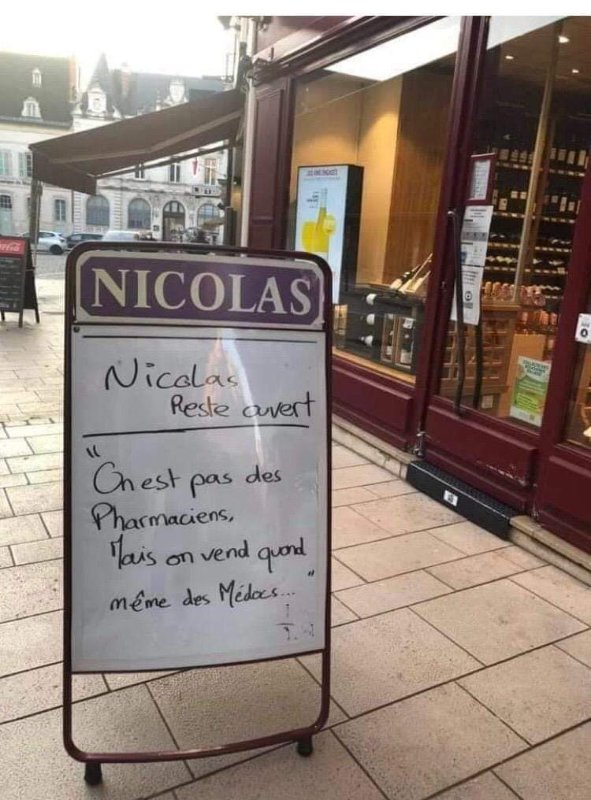 NICOLAS
Nicolas
Reste ouvert
"On est pas des
Pharmaciens,
Mais on vend quand
même des Médocs... "
Coca-Cola